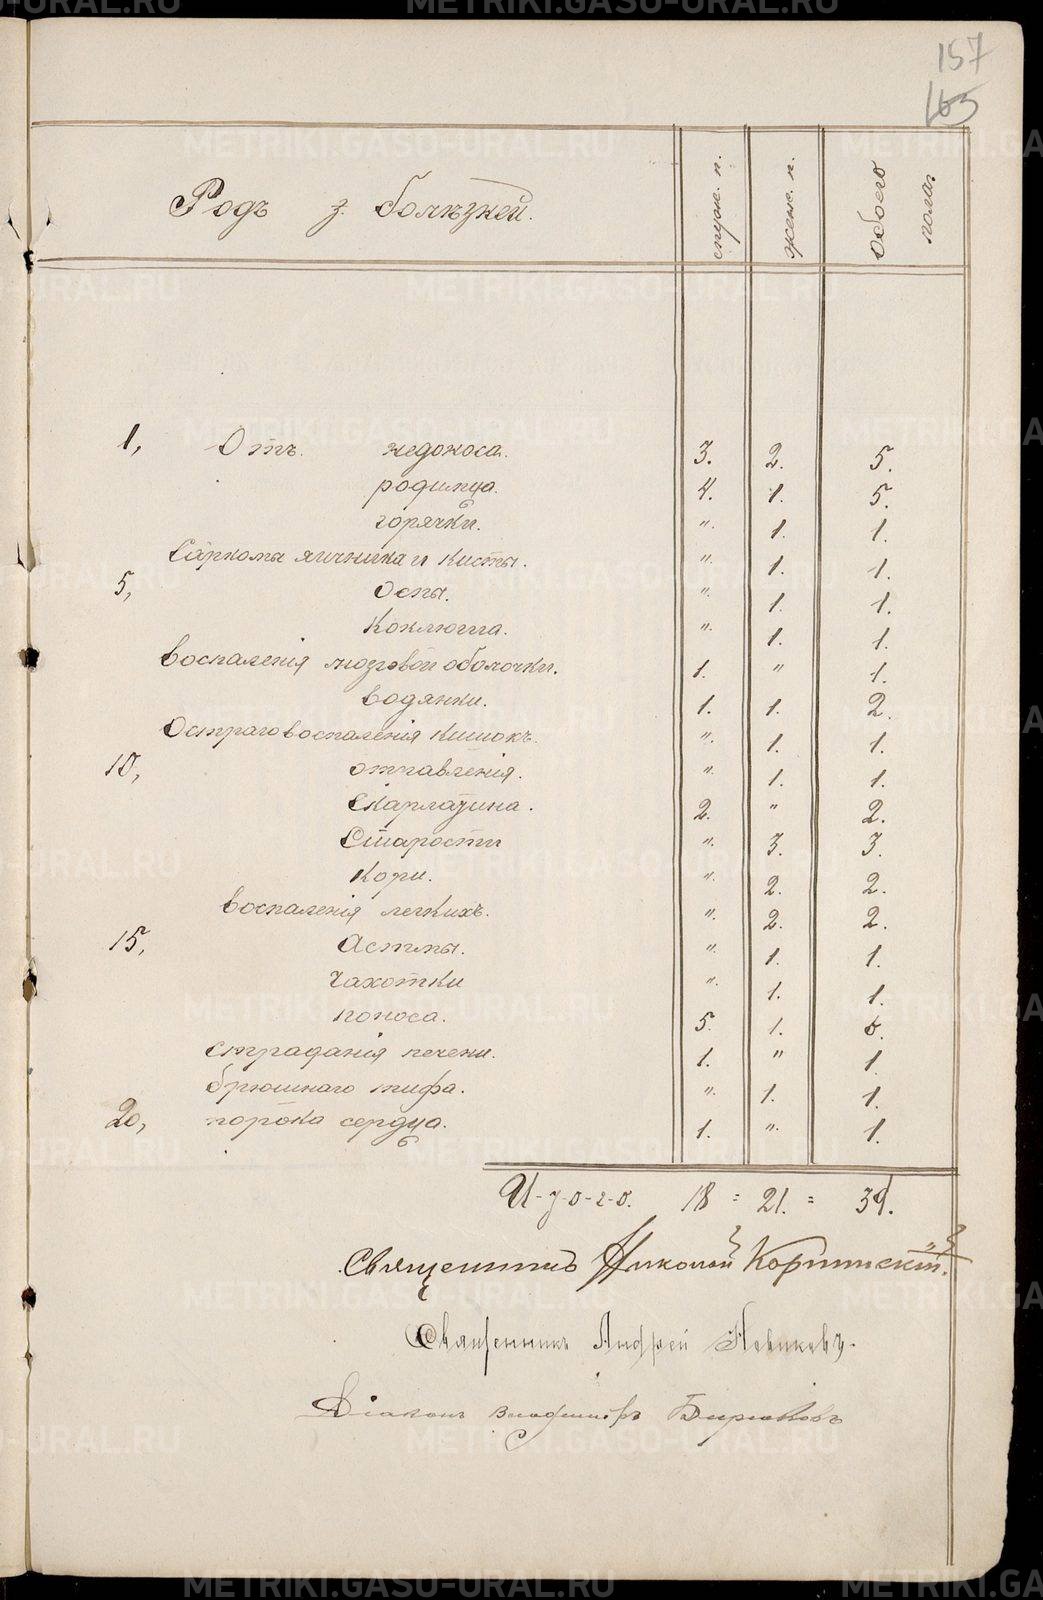 157
165
Родъ болѣзней.
муж. п.
женс. п.
обоего пола.
1, Отъ недоноса. 3. 2. 5.
родимца. 4. 1. 5.
горячки. " 1. 1.
Саркомы яичника и кисты. " 1. 1.
5, Оспы. " 1. 1.
Коклюша. " 1. 1.
Воспаленія мозговой оболочки. 1. " 1.
водянки. 1. 1. 2.
Остраго воспаленія кишокъ. " 1. 1.
10, отравленія. " 1. 1.
Скарлатина. 2. " 2.
Старости " 3. 3.
Кори. " 2. 2.
Воспаленія легкихъ. " 2. 2.
15, Астмы. " 1. 1.
Чахотки " 1. 1.
поноса. 5. 1. 6.
страданія печени. 1. " 1.
брюшнаго тифа. " 1. 1.
20, порока сердца. 1. " 1.
И-т-о-г-о. 18 = 21. = 39.
Священникъ Николай
Священникъ Андрей
Діаконъ Владиміръ Бирюковъ
METRIKI.GASO-URAL.RU